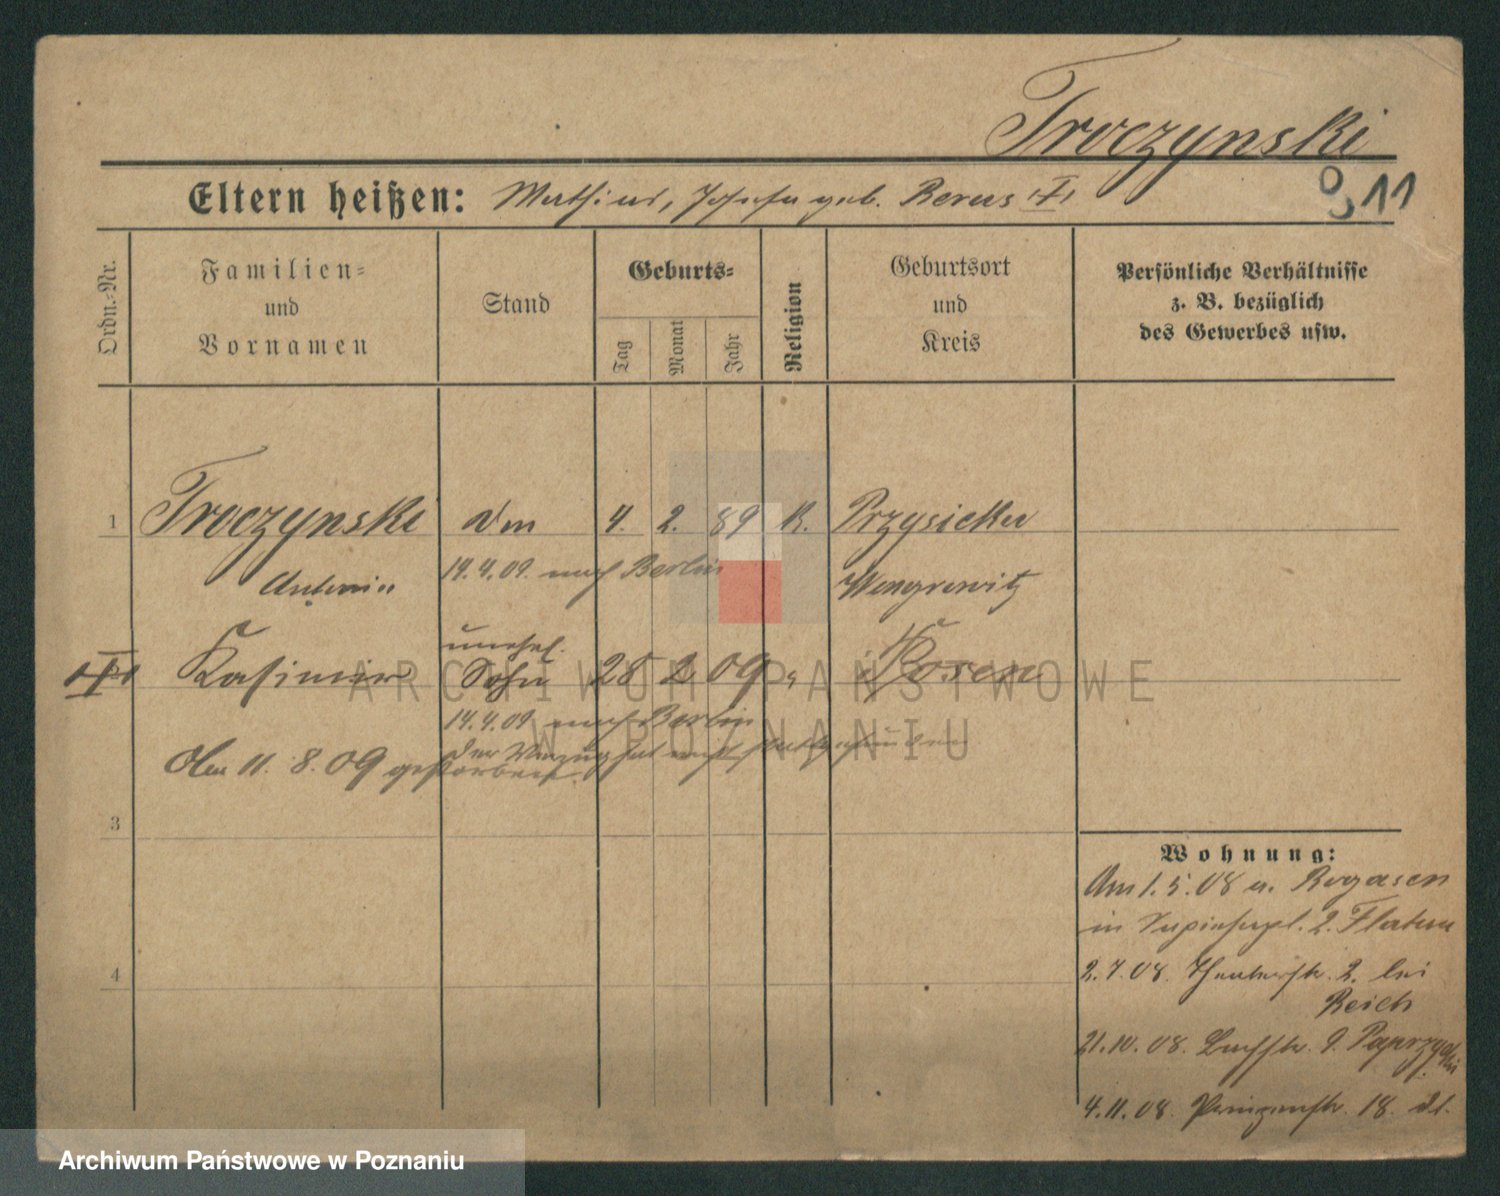 Troczynski
Eltern heißen: Mathias, Josefa geb. Rerus
911
Ordn.-Nr.
Familien-
und
Vornamen
Stand
Geburts-
Tag
Monat
Jahr
Religion
Geburtsort
und
Kreis
Persönliche Verhältnisse
z. B. bezüglich
des Gewerbes usw.
1 Troczynski 4. 2. 89 K. Przysieka
Antonie 14.4.09. nach Berlin Wongrowitz
unehel.
Kasimir Sohn 28 2 09 " Posen
14.4.09 nach Berlin
Der Wegzug hat nicht stattgefunden
Am 11. 8. 09 gestorben.
3
4
Wohnung:
Am 1. 5. 08 a. Rogasen
in Sapiehapl. 2. Flatau
2. 7. 08. Theaterstr. 2. bei
Reich
21. 10. 08. 9. Paprzycki
4. 11. 08 Prinzenstr. 18.
ARCHIWUM PAŃSTWOWE
W POZNANIU
Archiwum Państwowe w Poznaniu